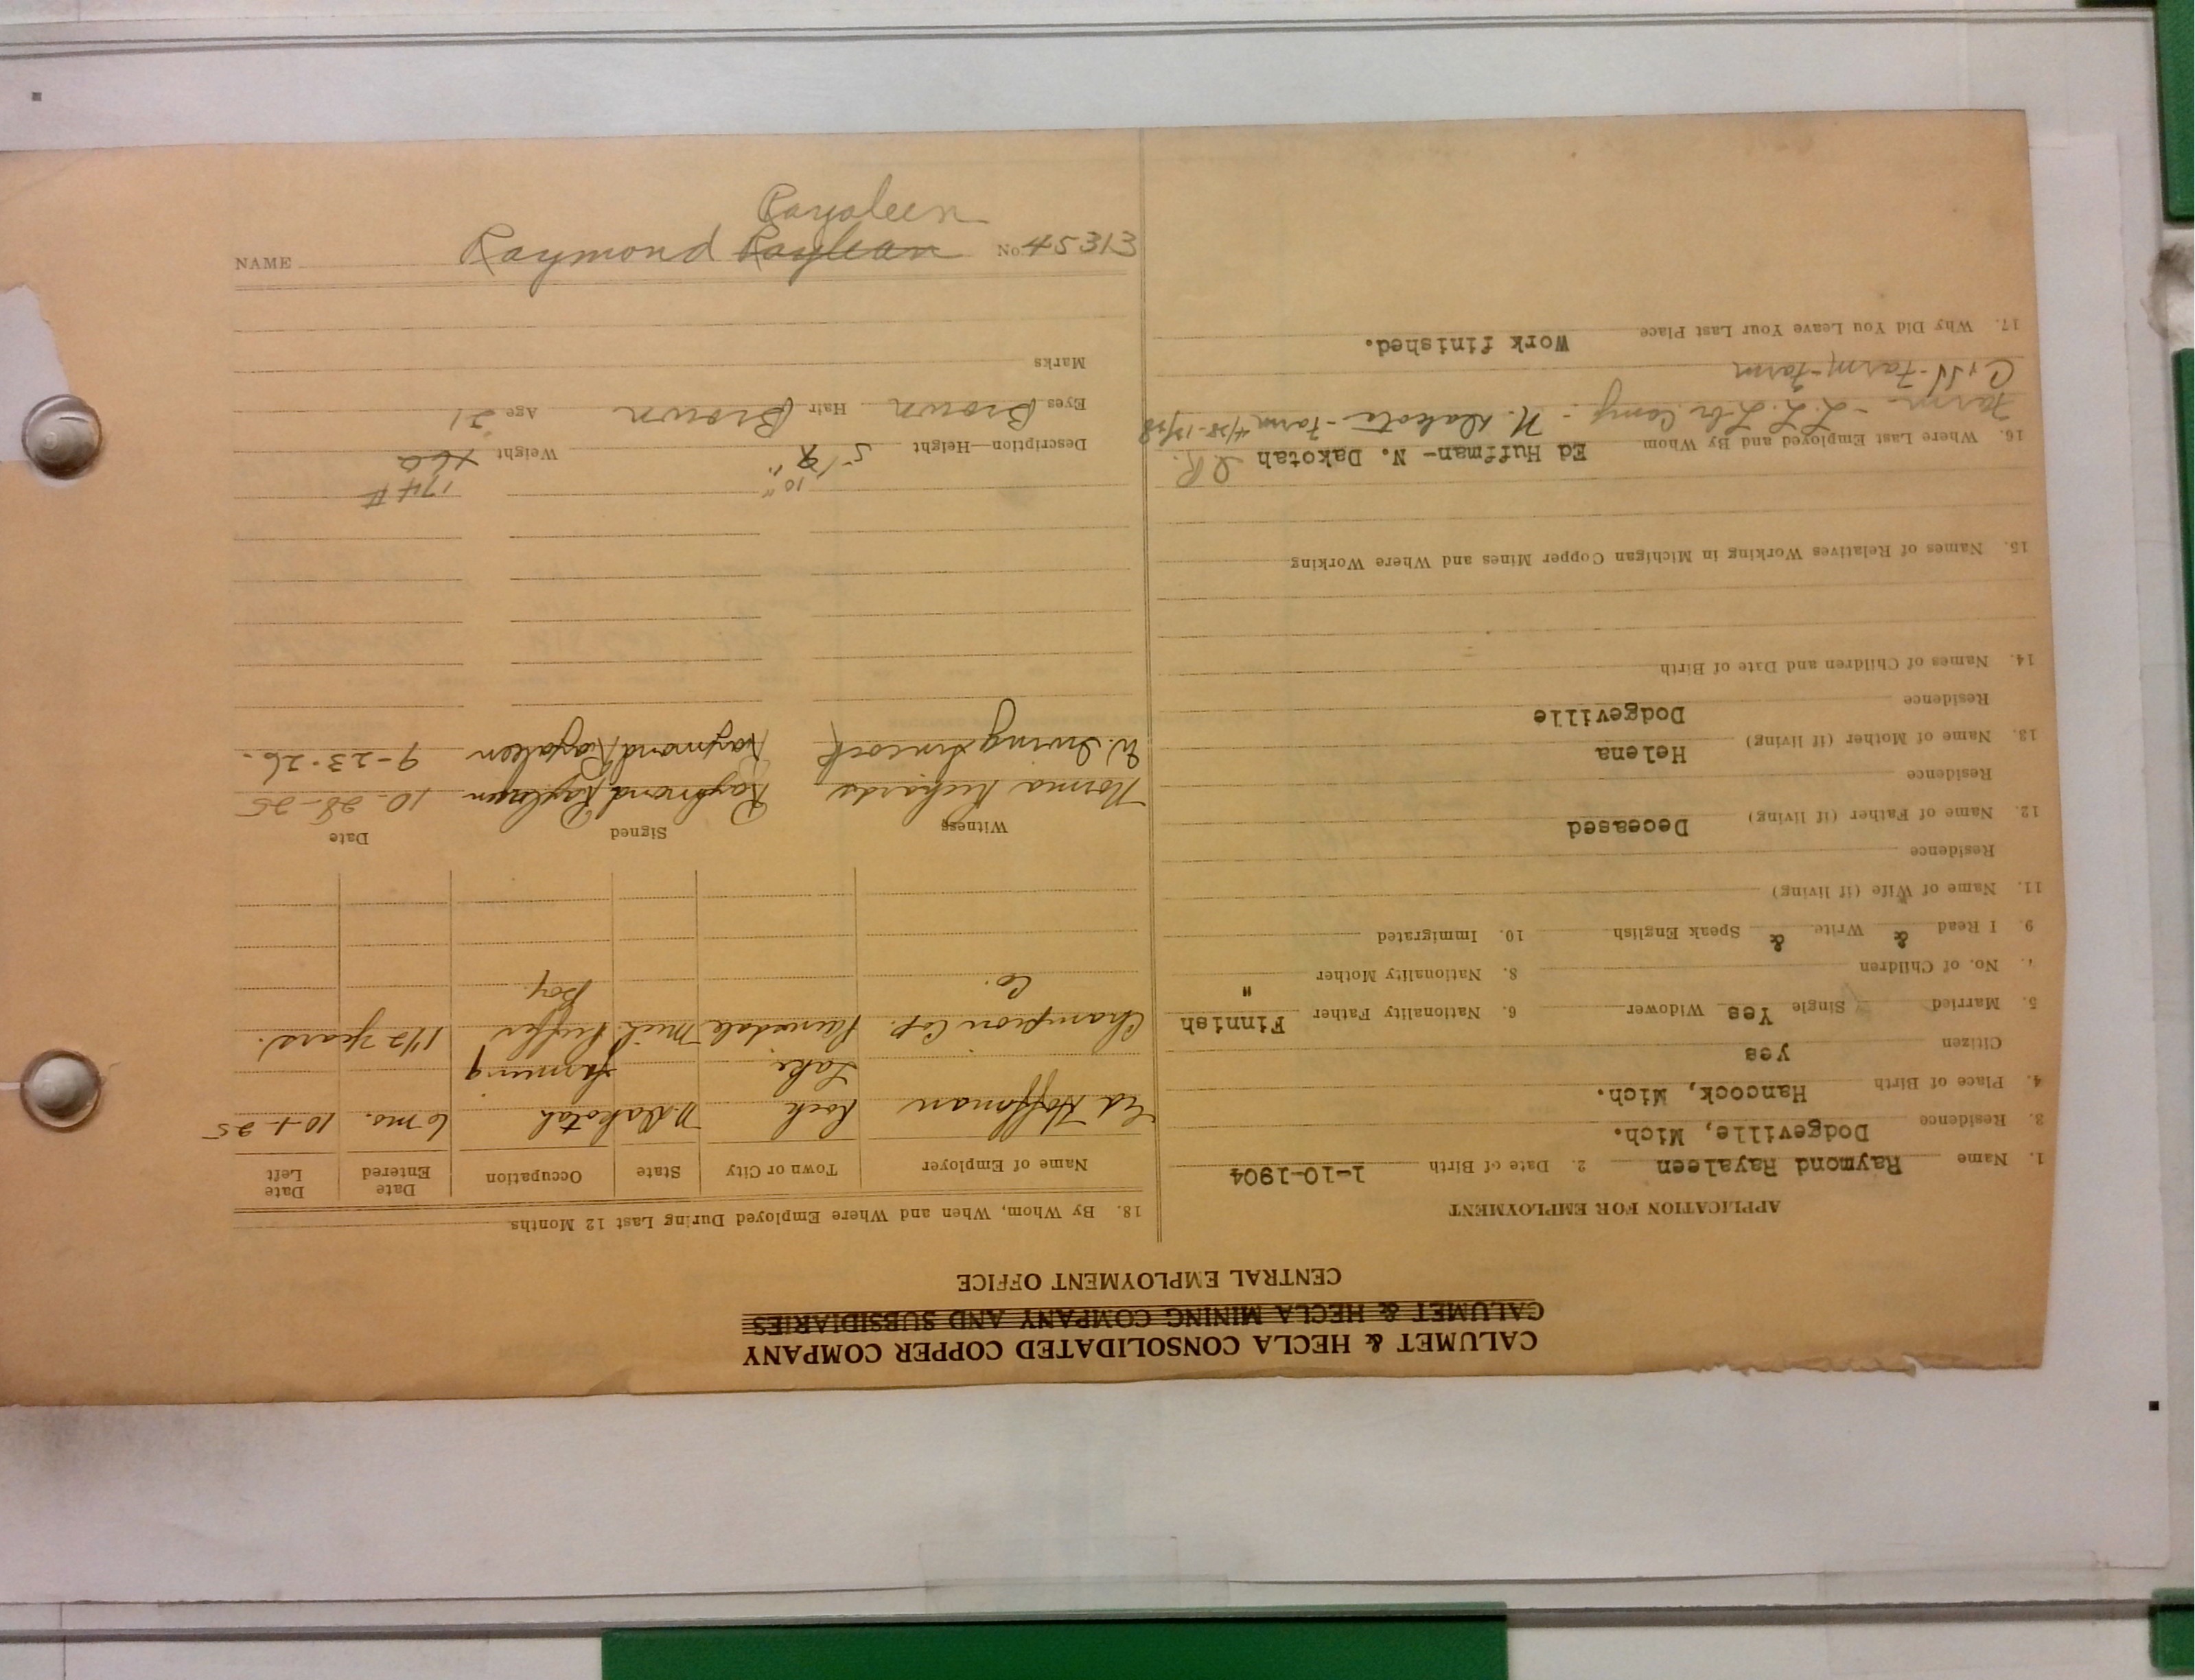 CALUMET & HECLA CONSOLIDATED COPPER COMPANY
CALUMET & HECLA MINING COMPANY AND SUBSIDIARIES
CENTRAL EMPLOYMENT OFFICE
APPLICATION FOR EMPLOYMENT
1. Name Raymond Rayaleen 2. Date of Birth 1-10-1904
3. Residence Dodgeville, Mich.
4. Place of Birth Hancock, Mich.
Citizen yes
5. Married Single Yes Widower 6. Nationality Father Finnish
7. No. of Children 8. Nationality Mother "
9. I Read & Write & Speak English 10. Immigrated
11. Name of Wife (if living)
Residence
12. Name of Father (if living) Deceased
Residence
13. Name of Mother (if living) Helena
Residence Dodgeville
14. Names of Children and Date of Birth
15. Names of Relatives Working in Michigan Copper Mines and Where Working
16. Where Last Employed and By Whom Ed Huffman- N. Dakotah
Farm - L.L. Lbr Comp. - N. Dakota - Farm
Farm - Farm
17. Why Did You Leave Your Last Place Work finished.
18. By Whom, When and Where Employed During Last 12 Months
Name of Employer Town or City State Occupation Date Entered Date Left
Ed Hoffman Rock Lake N. Dakotah Farming 6 mo. 10-1-25
Champion Cop. Co. Painesdale Mich. Puffer Boy. 1 1/2 years.
Witness Signed Date
Norma Richards Raymond Raylean 10-28-25
W. Irving Raymond Rayalen 9-23-26.
10" 174 #
Description—Height 5' 9" Weight 160
Eyes Brown Hair Brown Age 21
Marks
Rayaleen
NAME Raymond Raylean No. 45313